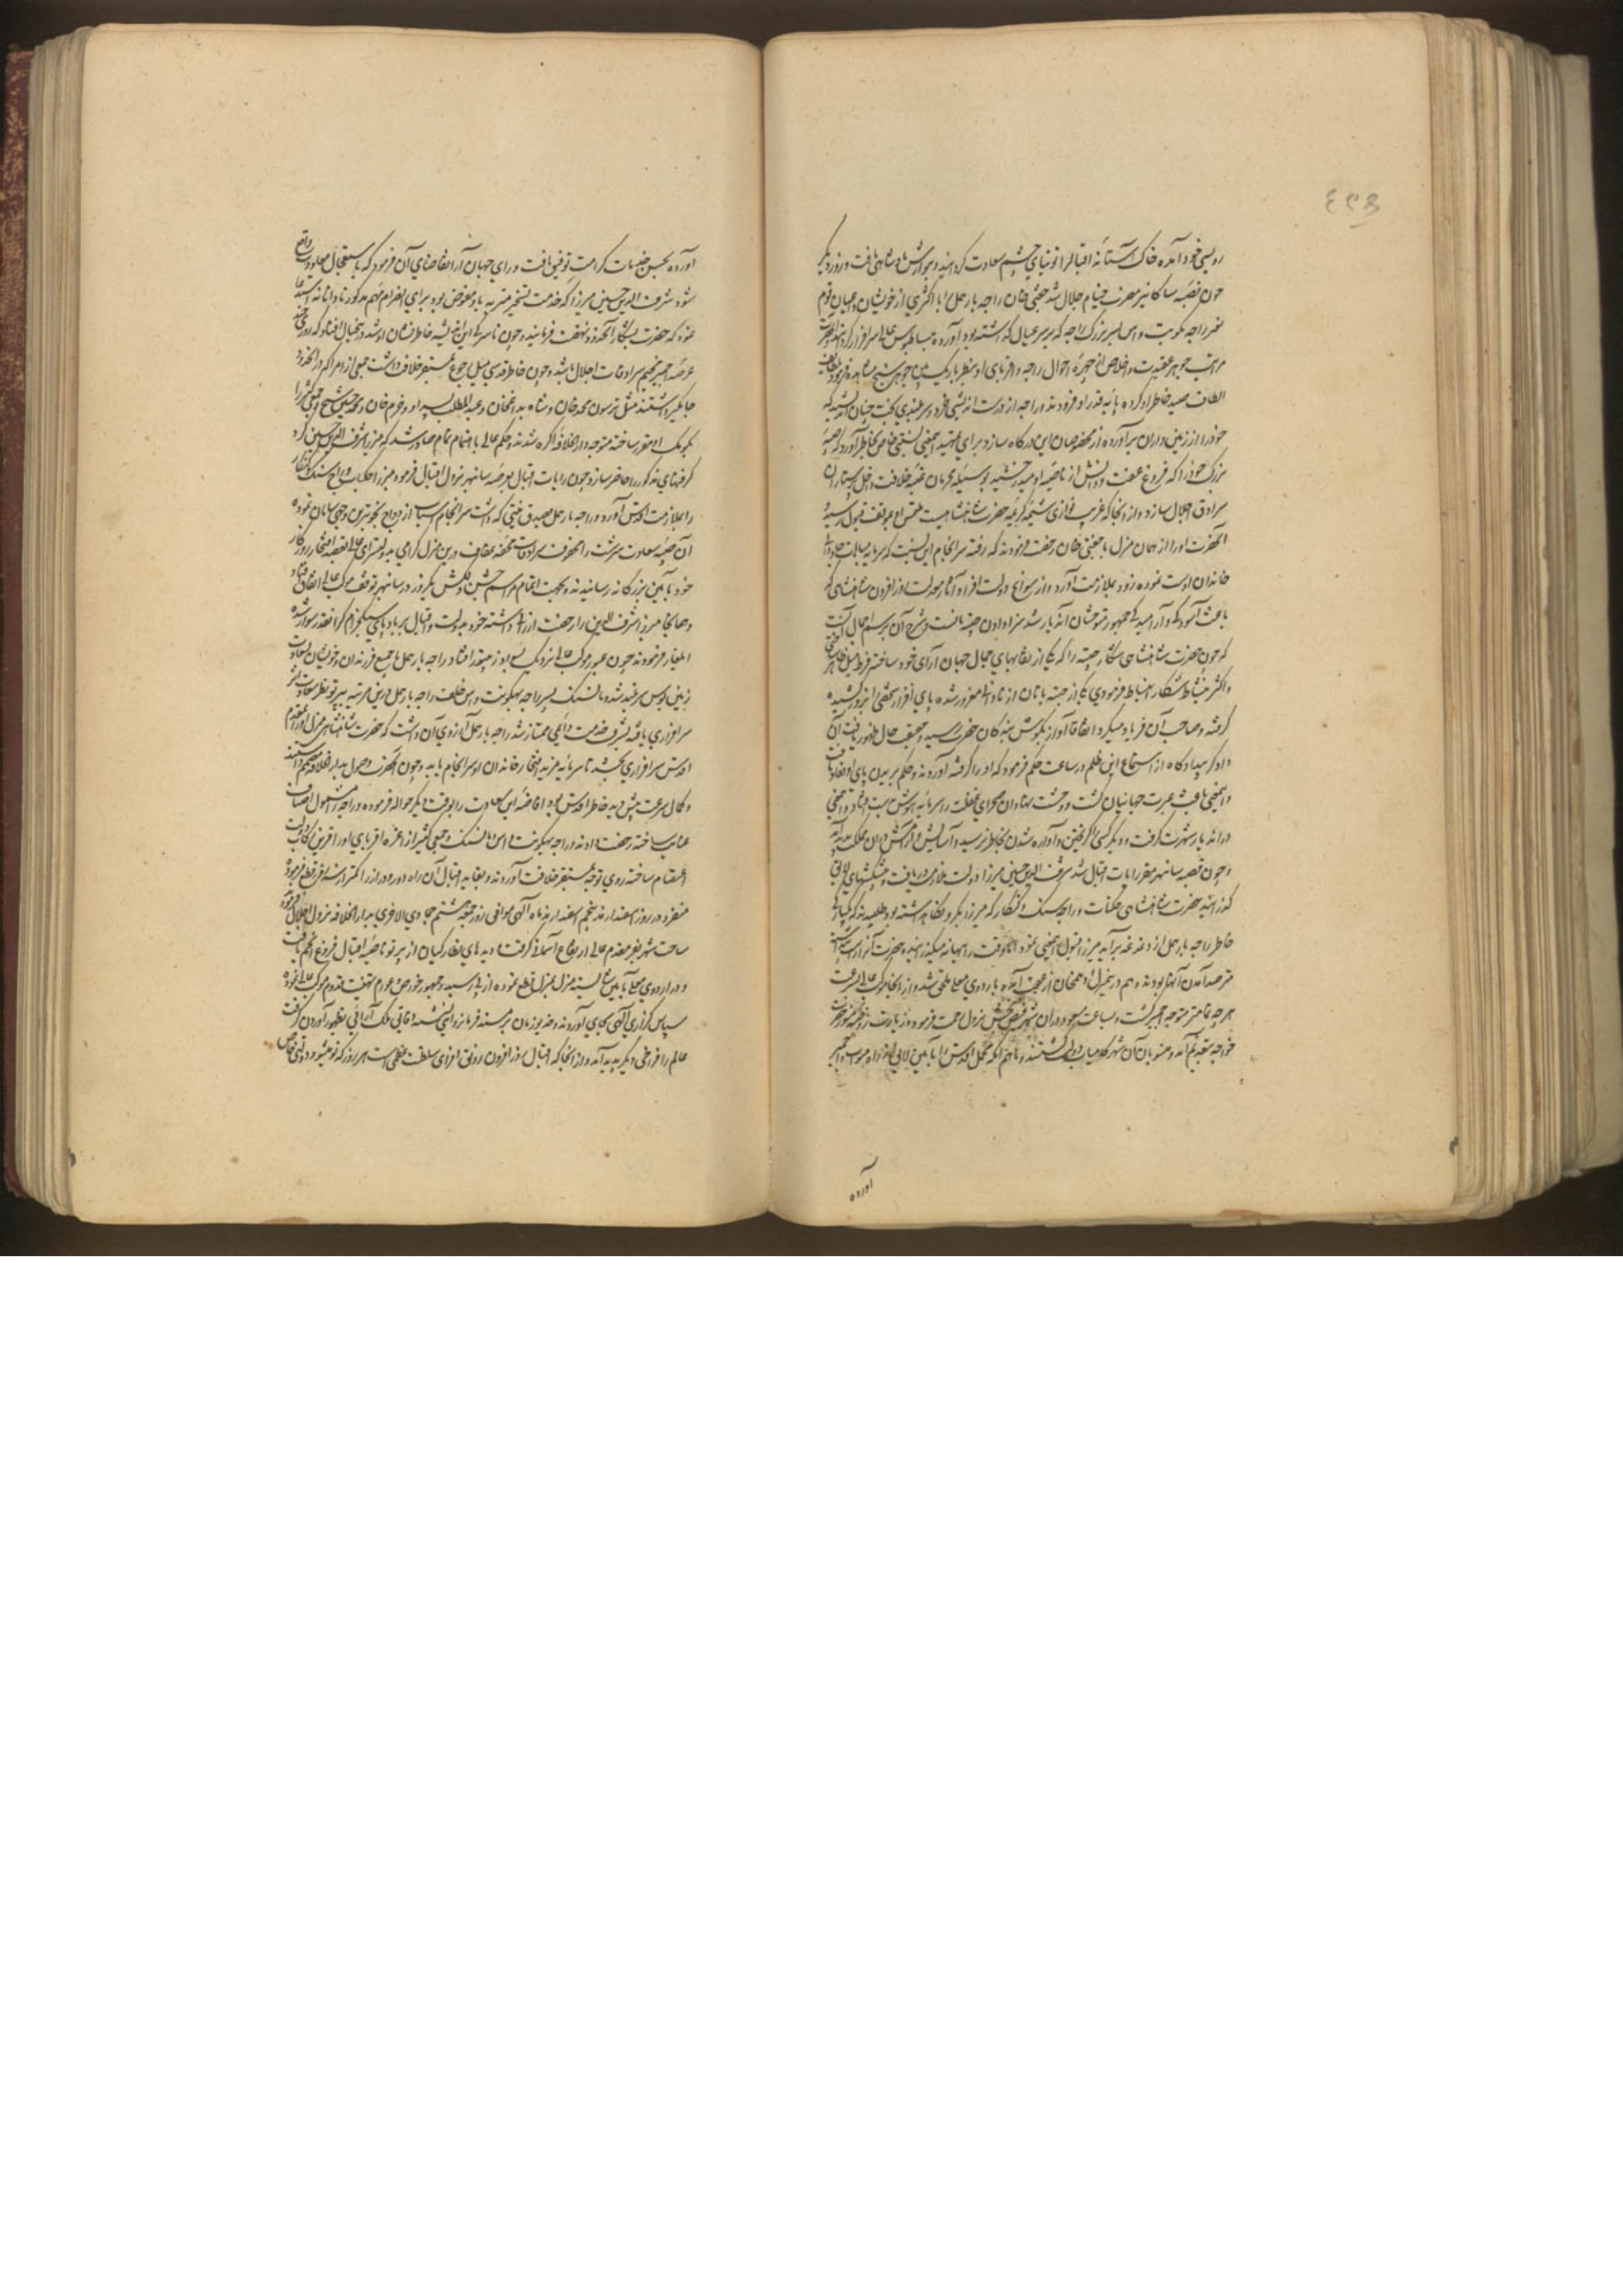 رویسی خود آمده خاک آستانهٔ اقبال را توتیای چشم سعادت گردانید و بنوازش پادشاهی یافت و روز دیگر
چون قصبه سانگانیر مضرب خیام جلال شد چغتی خان راجه بارمل را با اکثری از خویشان و اعیان قوم
غیر راجه بهگونت داس پسر بزرگ راجه که بر سر عیال گذاشته بود آورده ببساط بوس عالی سرافراز گردانید
مراتب جوهر عقیدت و اخلاص از چهرهٔ احوال راجه و اقربای او بنظر باریک بین جوهر سنج مشاهده فرمود
الطاف صید خاطر او کرده پایهٔ قدر او افزودند و راجه از درست اندیشی خرد و سربلندی بخت چنان اندیشید که
خود را از زمین داران برآورده از مخصوصان این درگاه سازد برای تمهید این معنی نسبتی خاص بخاطر آورد که صبیهٔ
بزرگ خود را که فروغ عفت و دانش از ناصیهٔ او میدرخشید بوسیلهٔ محرمان عتبهٔ خلافت داخل پرستاران
سرادق اجلال سازد و از آنجا که غریب نوازی شیمهٔ کریمهٔ حضرت شاهنشاهیست ملتمس او بموقف قبول رسید
آنحضرت او را از همان منزل با چغتی خان رخصت فرمودند که رفته سرانجام این نسبت که سرمایهٔ مباهات جاودانی
خاندان اوست نموده زود بملازمت آورد و از سوانح دولت افزا و آثار معدلت روزافزون شاهنشاهی که
باعث آسودگی و آرامیدگی جمهور متوحشان آن دیار شد سزا دادن چیته بانست و شرح آن بر سبیل اجمال آنست
که چون حضرت شاهنشاهی شکار چیته را که یکی از نقابهای جمال جهان آرای خود ساخته فرط میل ظاهر
و اکثر بنشاط شکار انبساط فرمودی یکی از چیته بانان از نادانی مغرور شده پای افزار شخصی بزور کشیده
گرفته و صاحب آن فریاد میکرد اتفاقا آواز بگوش بندگان حضرت رسید و حقیقت حال ظهور یافت آن
دادگر بیدادکاه از استماع این ظلم در ساعت حکم فرمود که او را گرفته آوردند و حکم بریدن پای او نفاذ یافت
و این معنی باعث عبرت جهانیان گشت و وحشت نهادان صحرای غفلت را سرمایهٔ هوش بدست افتاد و این معنی
در آن دیار شهرت گرفت و دیگر کسی را گریختن و آواره شدن بخاطر نرسید و آسایش و آرامش در آن مملکت پدید آمد
و چون قصبه سانبهر مقر رایات اقبال شد شرف الدین حسین میرزا دولت ملازمت دریافت و پیشکشهای لایق
گذرانید حضرت شاهنشاهی جگنات و راج سنگ و کنگار که میرزا بگرو نگاه داشته بود طلبیدند که یکبارگی
خاطر راجه بارمل از دغدغه برآید میرزا قبول این معنی نمود اما وقت را ببهانه میگذرانید و حضرت
مترصد آمدن آنها بودند و هم در منزل ادهم خان از عقب آمده باردوی معلی ملحق شد و از آنجا موکب عالی بسرعت
هر چه تمامتر متوجه اجمیر گشت و بساعت مسعود در آن شهر فیض بخش نزول رحمت فرموده زیارت روضهٔ منور حضرت
خواجه بتقدیم آمد و متوطنان آن شهر کامیاب دولت گشتند و ماهم انکه محمل اقدس را بآیین لایق از راه میوات باجمیر
آورده
آورده بحسن خدمات کرامت توفیق یافت و رای جهان آرا تقاضای آن فرمود که باستعجال معاودت واقع
شود شرف الدین حسین میرزا که خدمت تسخیر میرته باو مفوض بود برای انصرام مهم مذکور نادانانه استدعا
نمود که حضرت بشکار آنحدود نهضت فرمایند و چون ناسزگی این اندیشه خاطرنشان او شد در خیال افتاد که روزی چند
عرصهٔ اجمیر مخیم سرادقات اجلال باشد و چون خاطر قدسی میل رجوع بمستقر خلافت داشت جمعی از امرا که در آنحدود
جایگیر داشتند مثل ترسون محمد خان و شاه بداغ خان و عبدالمطلب پسر او و خرم خان و محمد حسین شیخ و جمعی کثیر را
بکومک او مقرر ساخته متوجه دارالخلافه آگره شدند و حکم عالی باهتمام تمام صادر شد که میرزا شرف الدین حسین گرو
گرفتهای مذکور را حاضر سازد و چون رایات اقبال بعرصهٔ سانبهر نزول اقبال فرمود میرزا جگنات و راج سنگ و کنگار
را بملازمت اقدس آورد و راجه بارمل بصدق نیتی که داشت سرانجام اسباب ازدواج بخوبترین وجهی سامان نموده
آن صبیهٔ سعادت سرشت را محفوف سرادقات محفهٔ عفاف درین منزل گرامی بدولتسرای عالی بقصد افتخار روزگار
خود بآیین بزرگانه رسانیدند و بجهت اتمام مراسم جشن دلکش یکروز در سانبهر توقف موکب عالی اتفاق افتاد
و همانجا میرزا شرف الدین را رخصت ارزانی داشته خود بدولت و اقبال بر باد پای سبکخرام گرانقدر سوار شده
ایلغار فرمودند چون عبور موکب عالی نزدیک رنتهبور افتاد راجه بارمل با جمیع فرزندان و خویشان بسعادت
زمین بوس سربلند شد و مانسنگ پسر راجه بهگونت داس خلف راجه بارمل درین مرتبه بپرتو نظر سعادت اثر
سرافرازی یافته بشرف خدمت دایمی ممتاز شد راجه بارمل آرزوی آن داشت که حضرت شاهنشاهی منزل او را بقدوم
اقدس سرافرازی بخشد تا سرمایهٔ مزید افتخار خاندان او سرانجام یابد و چون آنحضرت وصول بدارالخلافه مصمم داشتند
و کمال سرعت پیش دید خاطر اقدس بود افاضهٔ این سعادت را بوقت دیگر حواله فرموده و راجه را مشمول اصناف
عنایت ساخته رخصت دادند و راجه بهگونت داس و مانسنگ و جمعی کثیر از اعزهٔ اقربای او را قرین رکاب دولت
اعتصام ساخته روی توجه بمستقر خلافت آوردند و بقاید اقبال آن راه دور و دراز را کمتر از سه روز قطع فرموده
متفرد در روز اسفندارمذ پنجم اسفندارمذ ماه الهی موافق روز جمعه هشتم جمادی الاخری بدارالخلافه نزول اجلال فرمودند
ساحت شهر بفر مقدم عالی ارتفاع آسمانی گرفت و دیدهای نظارگیان از پرتو ناصیهٔ اقبال فروغ انجم یافت
و در اردوی معلی بآیین شایسته منزل بمنزل قطع نموده از پی رسید و جمهور خواص و عوام تهنیت قدوم موکب عالی نموده
سپاس گزاری الهی بجای آوردند و خدیو زمان بر مسند فرمانروایی نشسته آفاق ملک آرائی بظهور آوردن گرفت
عالم را فراخی دیگر پدید آمد و از آنجا که اقبال روزافزون رونق افزای سلطنت عظمی است هر روز که نو میشود دولتی خاص